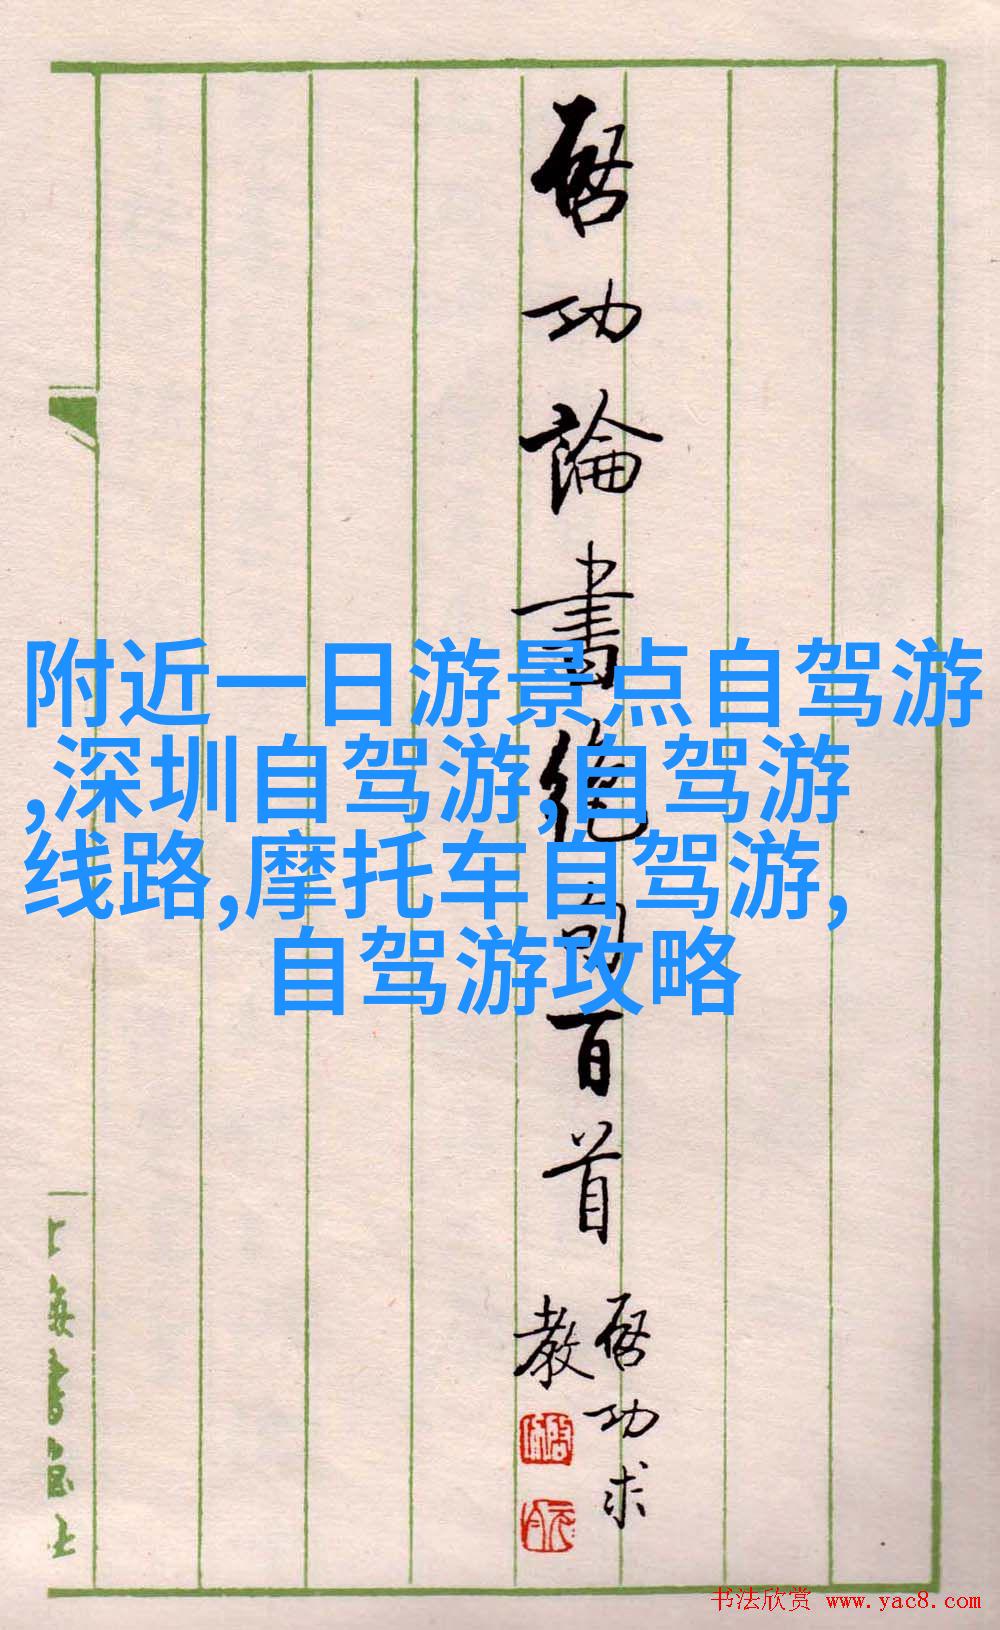 啓功論書絶句百首
啓功求
教
附近一日游景点自驾游
,深圳自驾游,自驾游
线路,摩托车自驾游,
自驾游攻略
上海書画社
书法欣赏 www.yac8.com